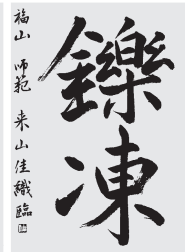 鑠凍
福山 師範 来山佳織臨